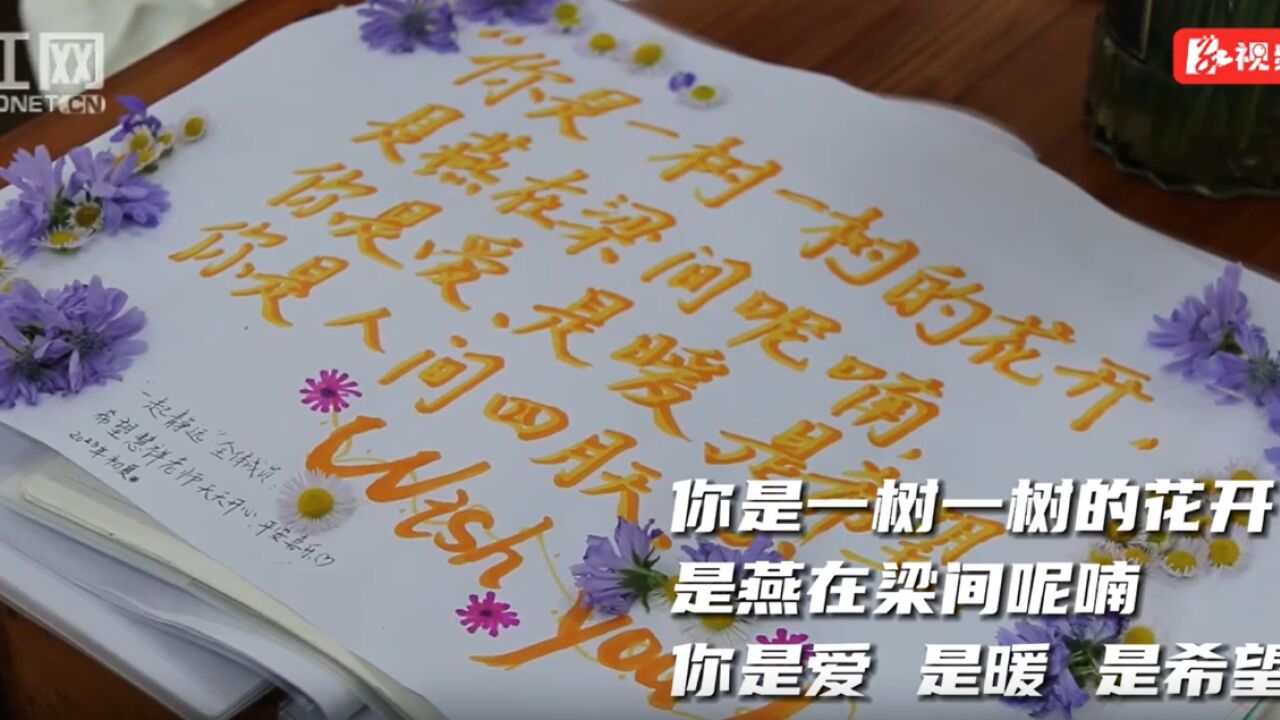 红网
DNET.CN
视频
“你是一树一树的花开，
是燕在梁间呢喃，
你是爱、是暖、是希望
你是人间四月天
Wish you
“一起静远”全体成员：
希望慧祥老师天天开心、平安喜乐♡
2023年初夏
你是一树一树的花开
是燕在梁间呢喃
你是爱 是暖 是希望